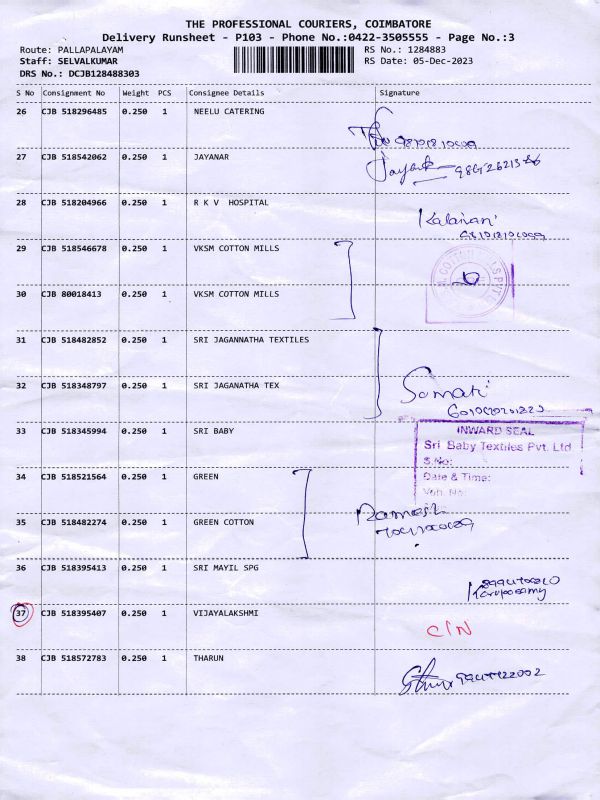 THE PROFESSIONAL COURIERS, COIMBATORE
Delivery Runsheet - P103 - Phone No.:0422-3505555 - Page No.:3
Route: PALLAPALAYAM RS No.: 1284883
Staff: SELVALKUMAR RS Date: 05-Dec-2023
DRS No.: DCJB128488303
S No Consignment No Weight PCS Consignee Details Signature
26 CJB 518296485 0.250 1 NEELU CATERING
27 CJB 518542062 0.250 1 JAYANAR
28 CJB 518204966 0.250 1 R K V HOSPITAL
Kalaivani
29 CJB 518546678 0.250 1 VKSM COTTON MILLS
30 CJB 80018413 0.250 1 VKSM COTTON MILLS
31 CJB 518482852 0.250 1 SRI JAGANNATHA TEXTILES
32 CJB 518348797 0.250 1 SRI JAGANATHA TEX
Somati
33 CJB 518345994 0.250 1 SRI BABY
INWARD SEAL
Sri Baby Textiles Pvt. Ltd
S.No:
Date & Time:
Veh. No:
34 CJB 518521564 0.250 1 GREEN
35 CJB 518482274 0.250 1 GREEN COTTON
Ramesh
36 CJB 518395413 0.250 1 SRI MAYIL SPG
Karuposamy
37 CJB 518395407 0.250 1 VIJAYALAKSHMI
C/N
38 CJB 518572783 0.250 1 THARUN